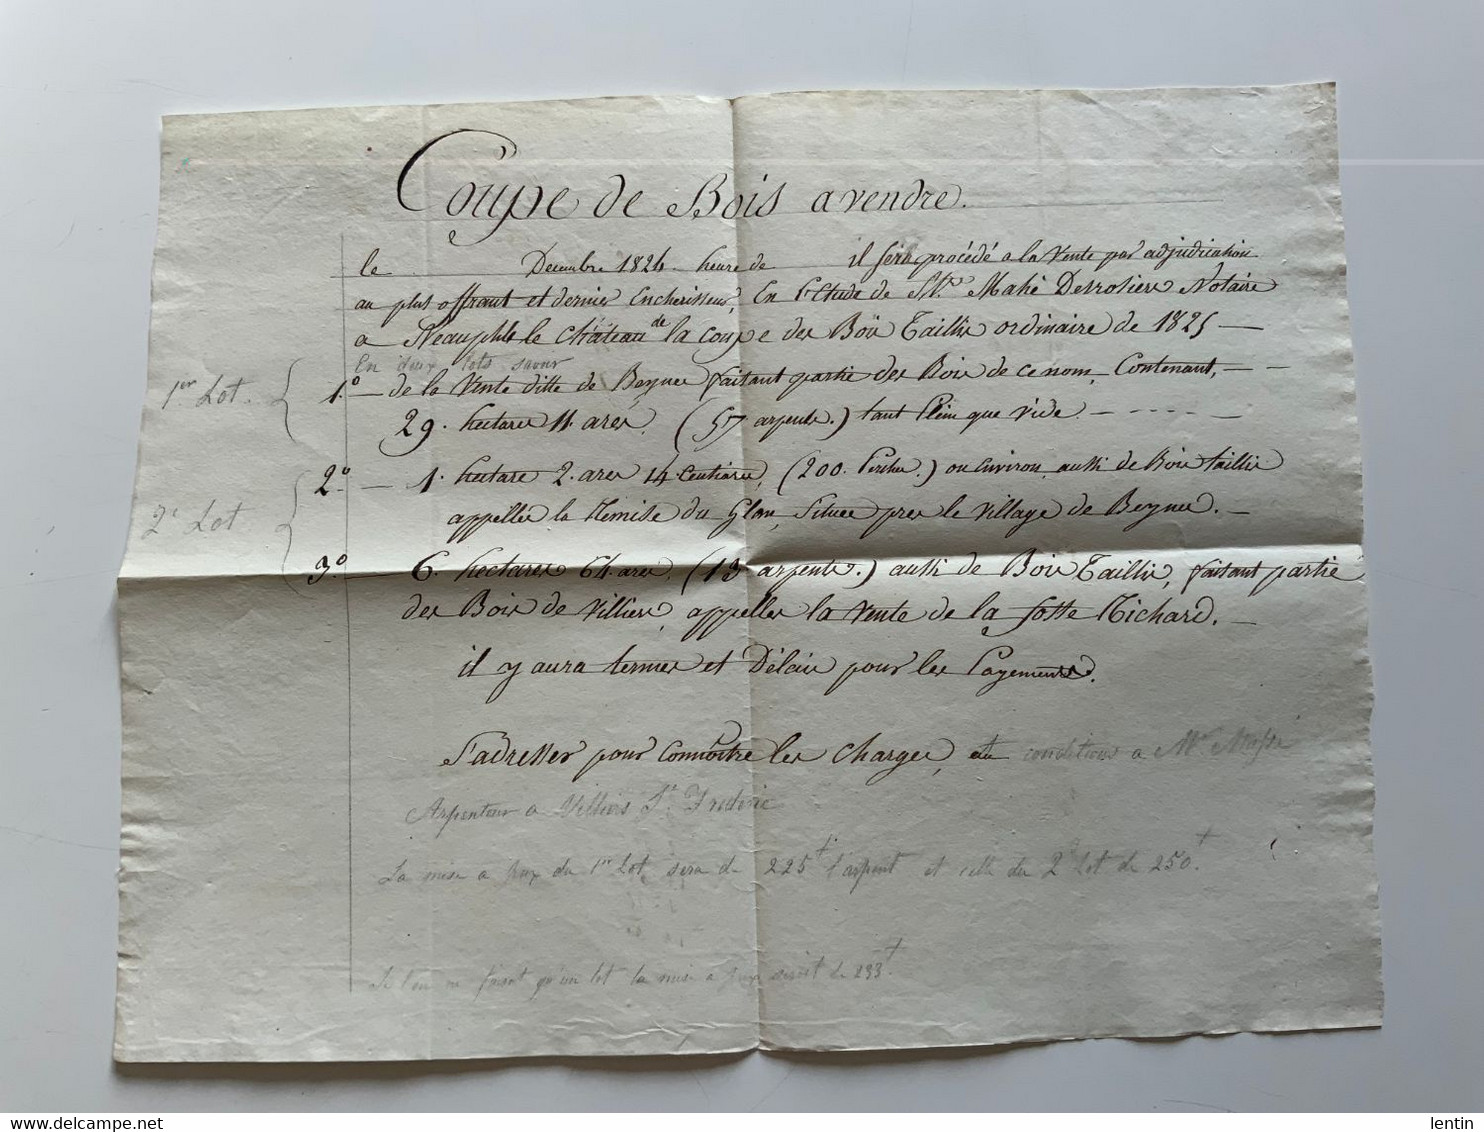 Coupe de Bois a vendre.
le Decembre 1824. heure de il sera procédé a la Vente par adjudication
au plus offrant et dernier Encherisseur, En l'Etude de Mr. Mahé Desrosiers Notaire
a Neauphle le Château de la coupe des Bois Taillis ordinaire de 1825 —
En deux lots savoir
1er Lot. 1.° — de la Vente ditte de Beynes faitant partie des Bois de ce nom, Contenant, — —
29. hectares 11. ares. (57 arpents.) tant Plein que Vide — - - - -
2° — 1. hectare 2. ares 14. centiares, (200. Perches.) ou environ, aussi de Bois taillis
2e Lot
appellés la Remise du Glan, Située pres le Village de Beynes. —
3.° — 6. hectares 64. ares, (13 arpents.) aussi de Bois Taillis, faitant partie
des Bois de Villiers, appellés la Vente de la fosse Richard. —
il y aura termes et Délais pour les Payements.
S'adresser pour Connoître les Charges, et conditions a Mr Masse
Arpenteur a Villiers St. Frederic
La mise a prix du 1er Lot sera de 225 l'arpent et celle du 2e Lot de 250.
Si l'on ne faisoit qu'un lot la mise a prix seroit de 233
lentin